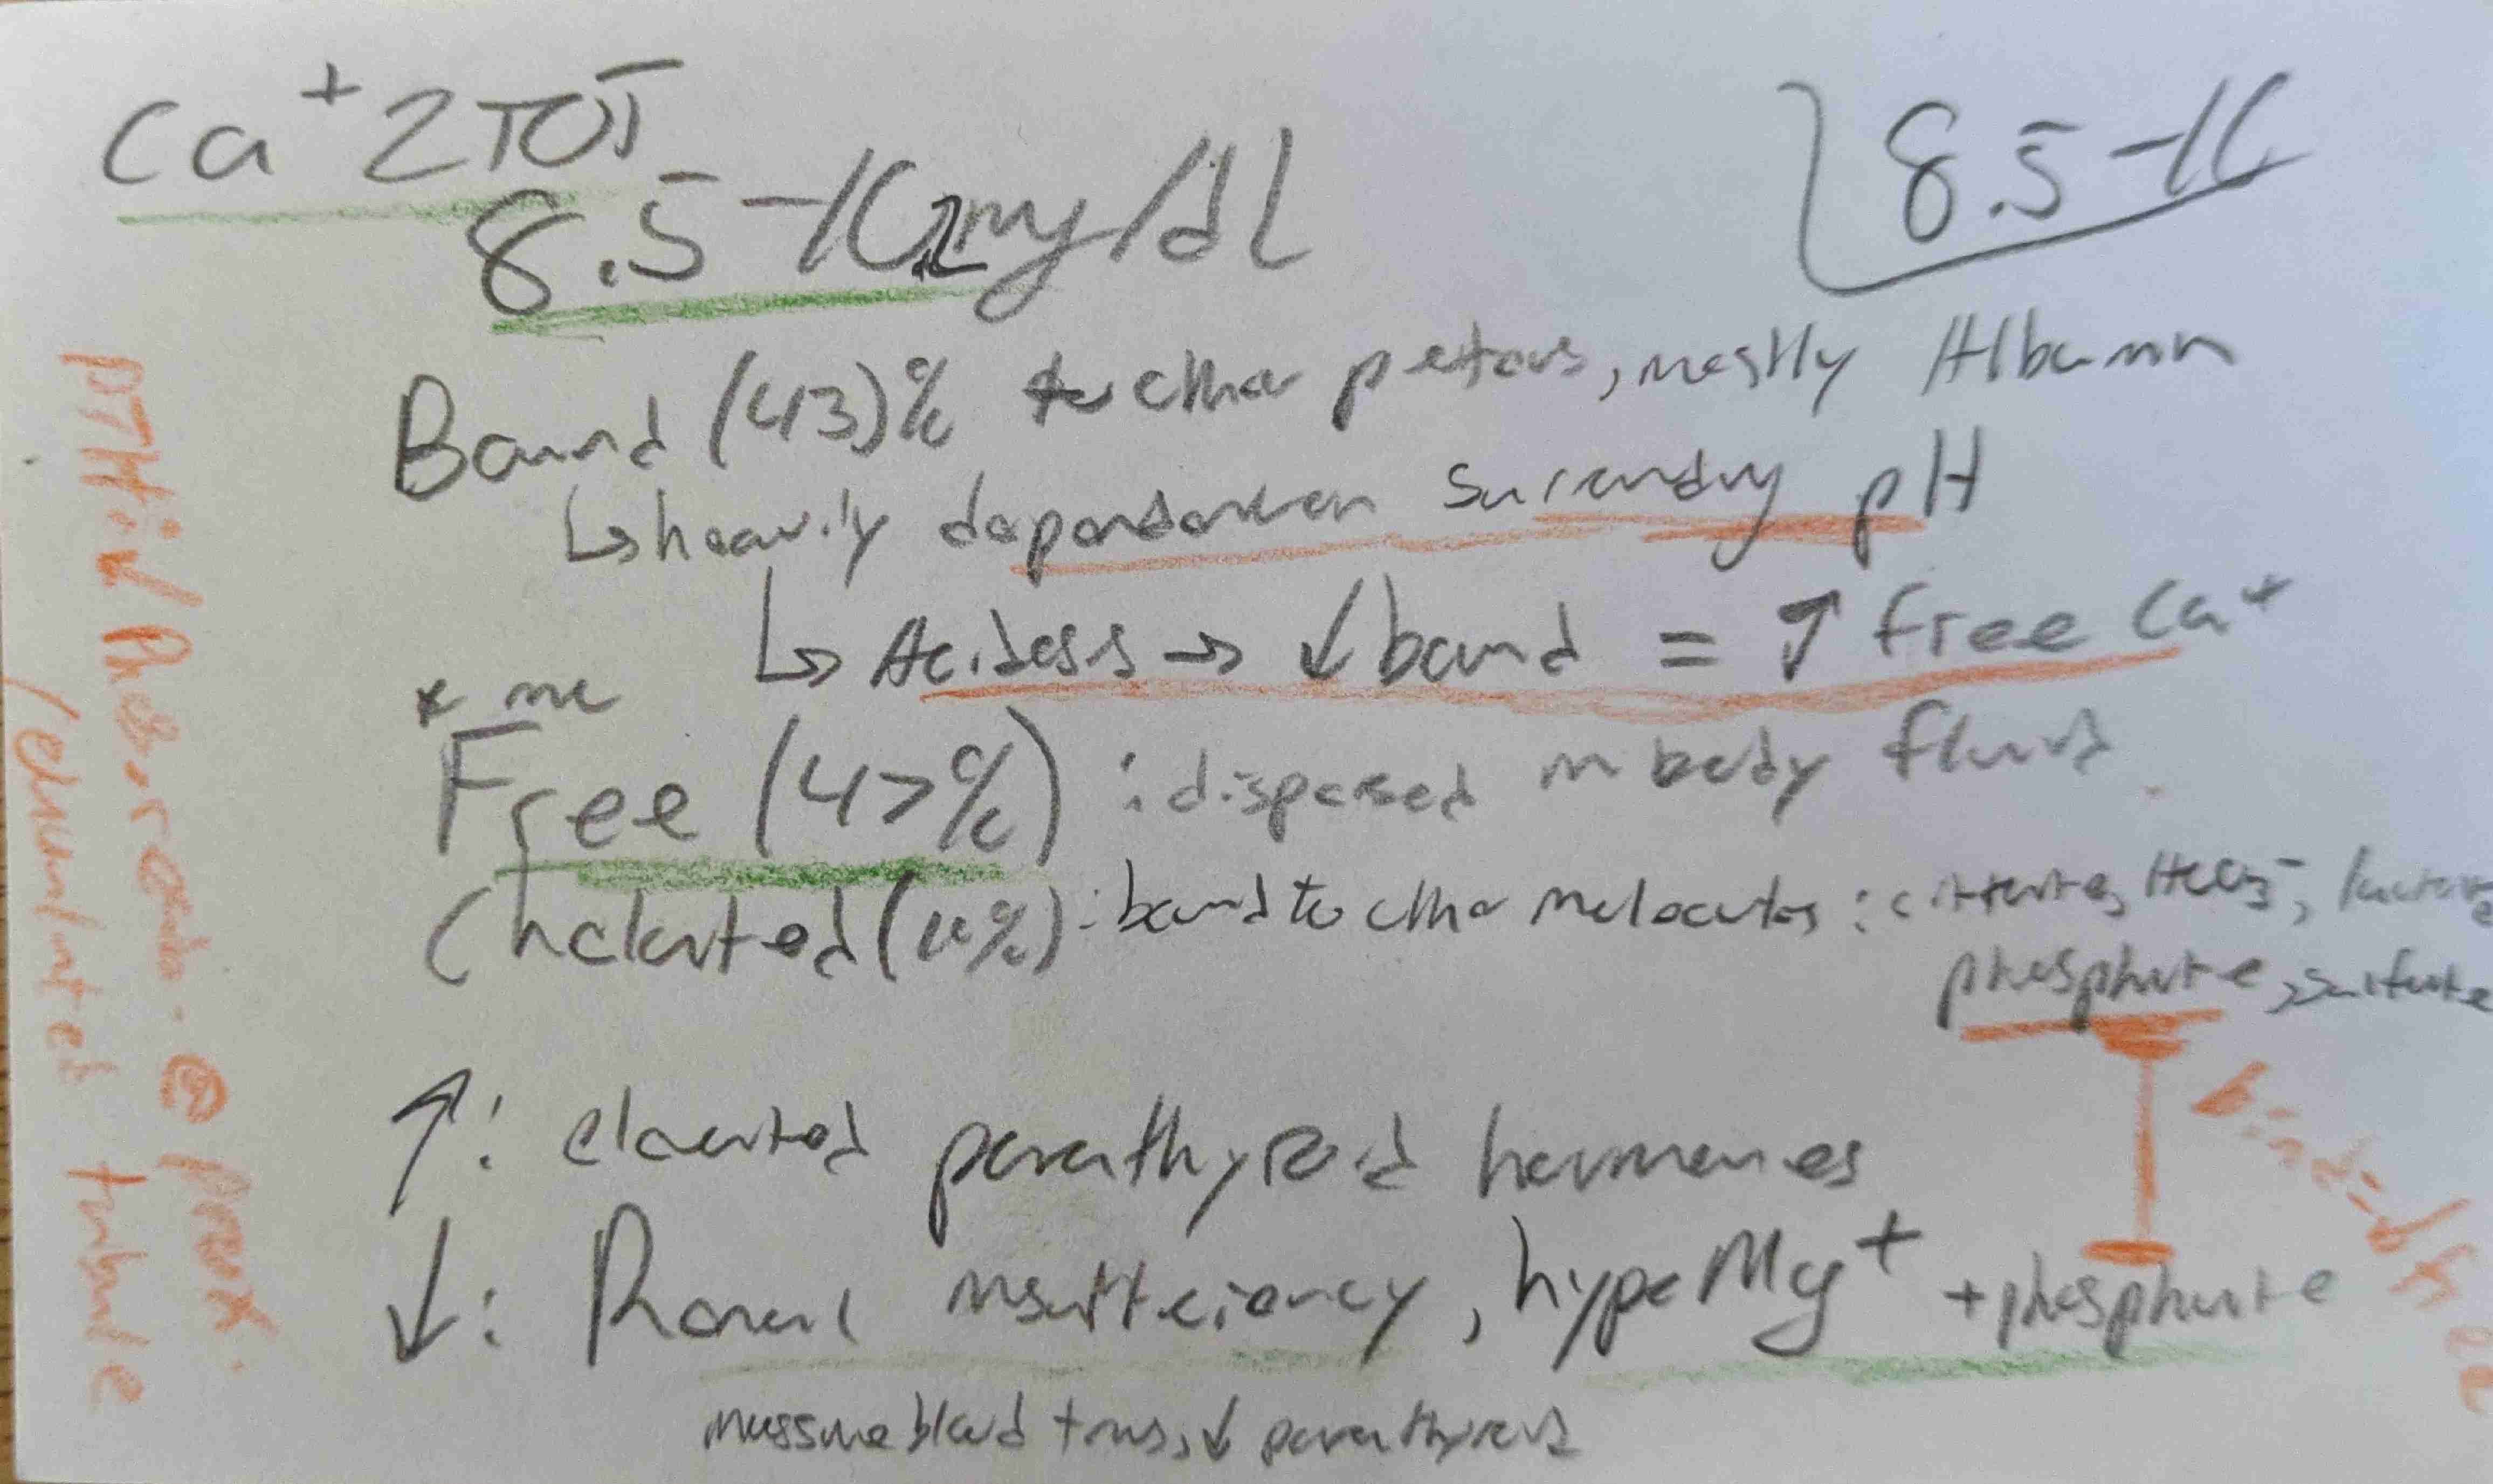 Ca+2 TOT
8.5-10.2 mg/dL
8.5-10
Bound (43)% to other proteins, mostly Albumin
↳ heavily dependent on surrounding pH
↳ Acidosis → ↓ bound = ↑ free Ca+
Free (47%) : dispersed in body fluids
Chelated (10%) : bound to other molecules : citrate, HCO3-, lactate
phosphate, sulfate
↑: elevated parathyroid hormones
↓: Renal insufficiency, hypeMg+ + phosphate
massive blood trans, ↓ parathyroid
PTH inh Phos. reabs. @ prox.
tubule